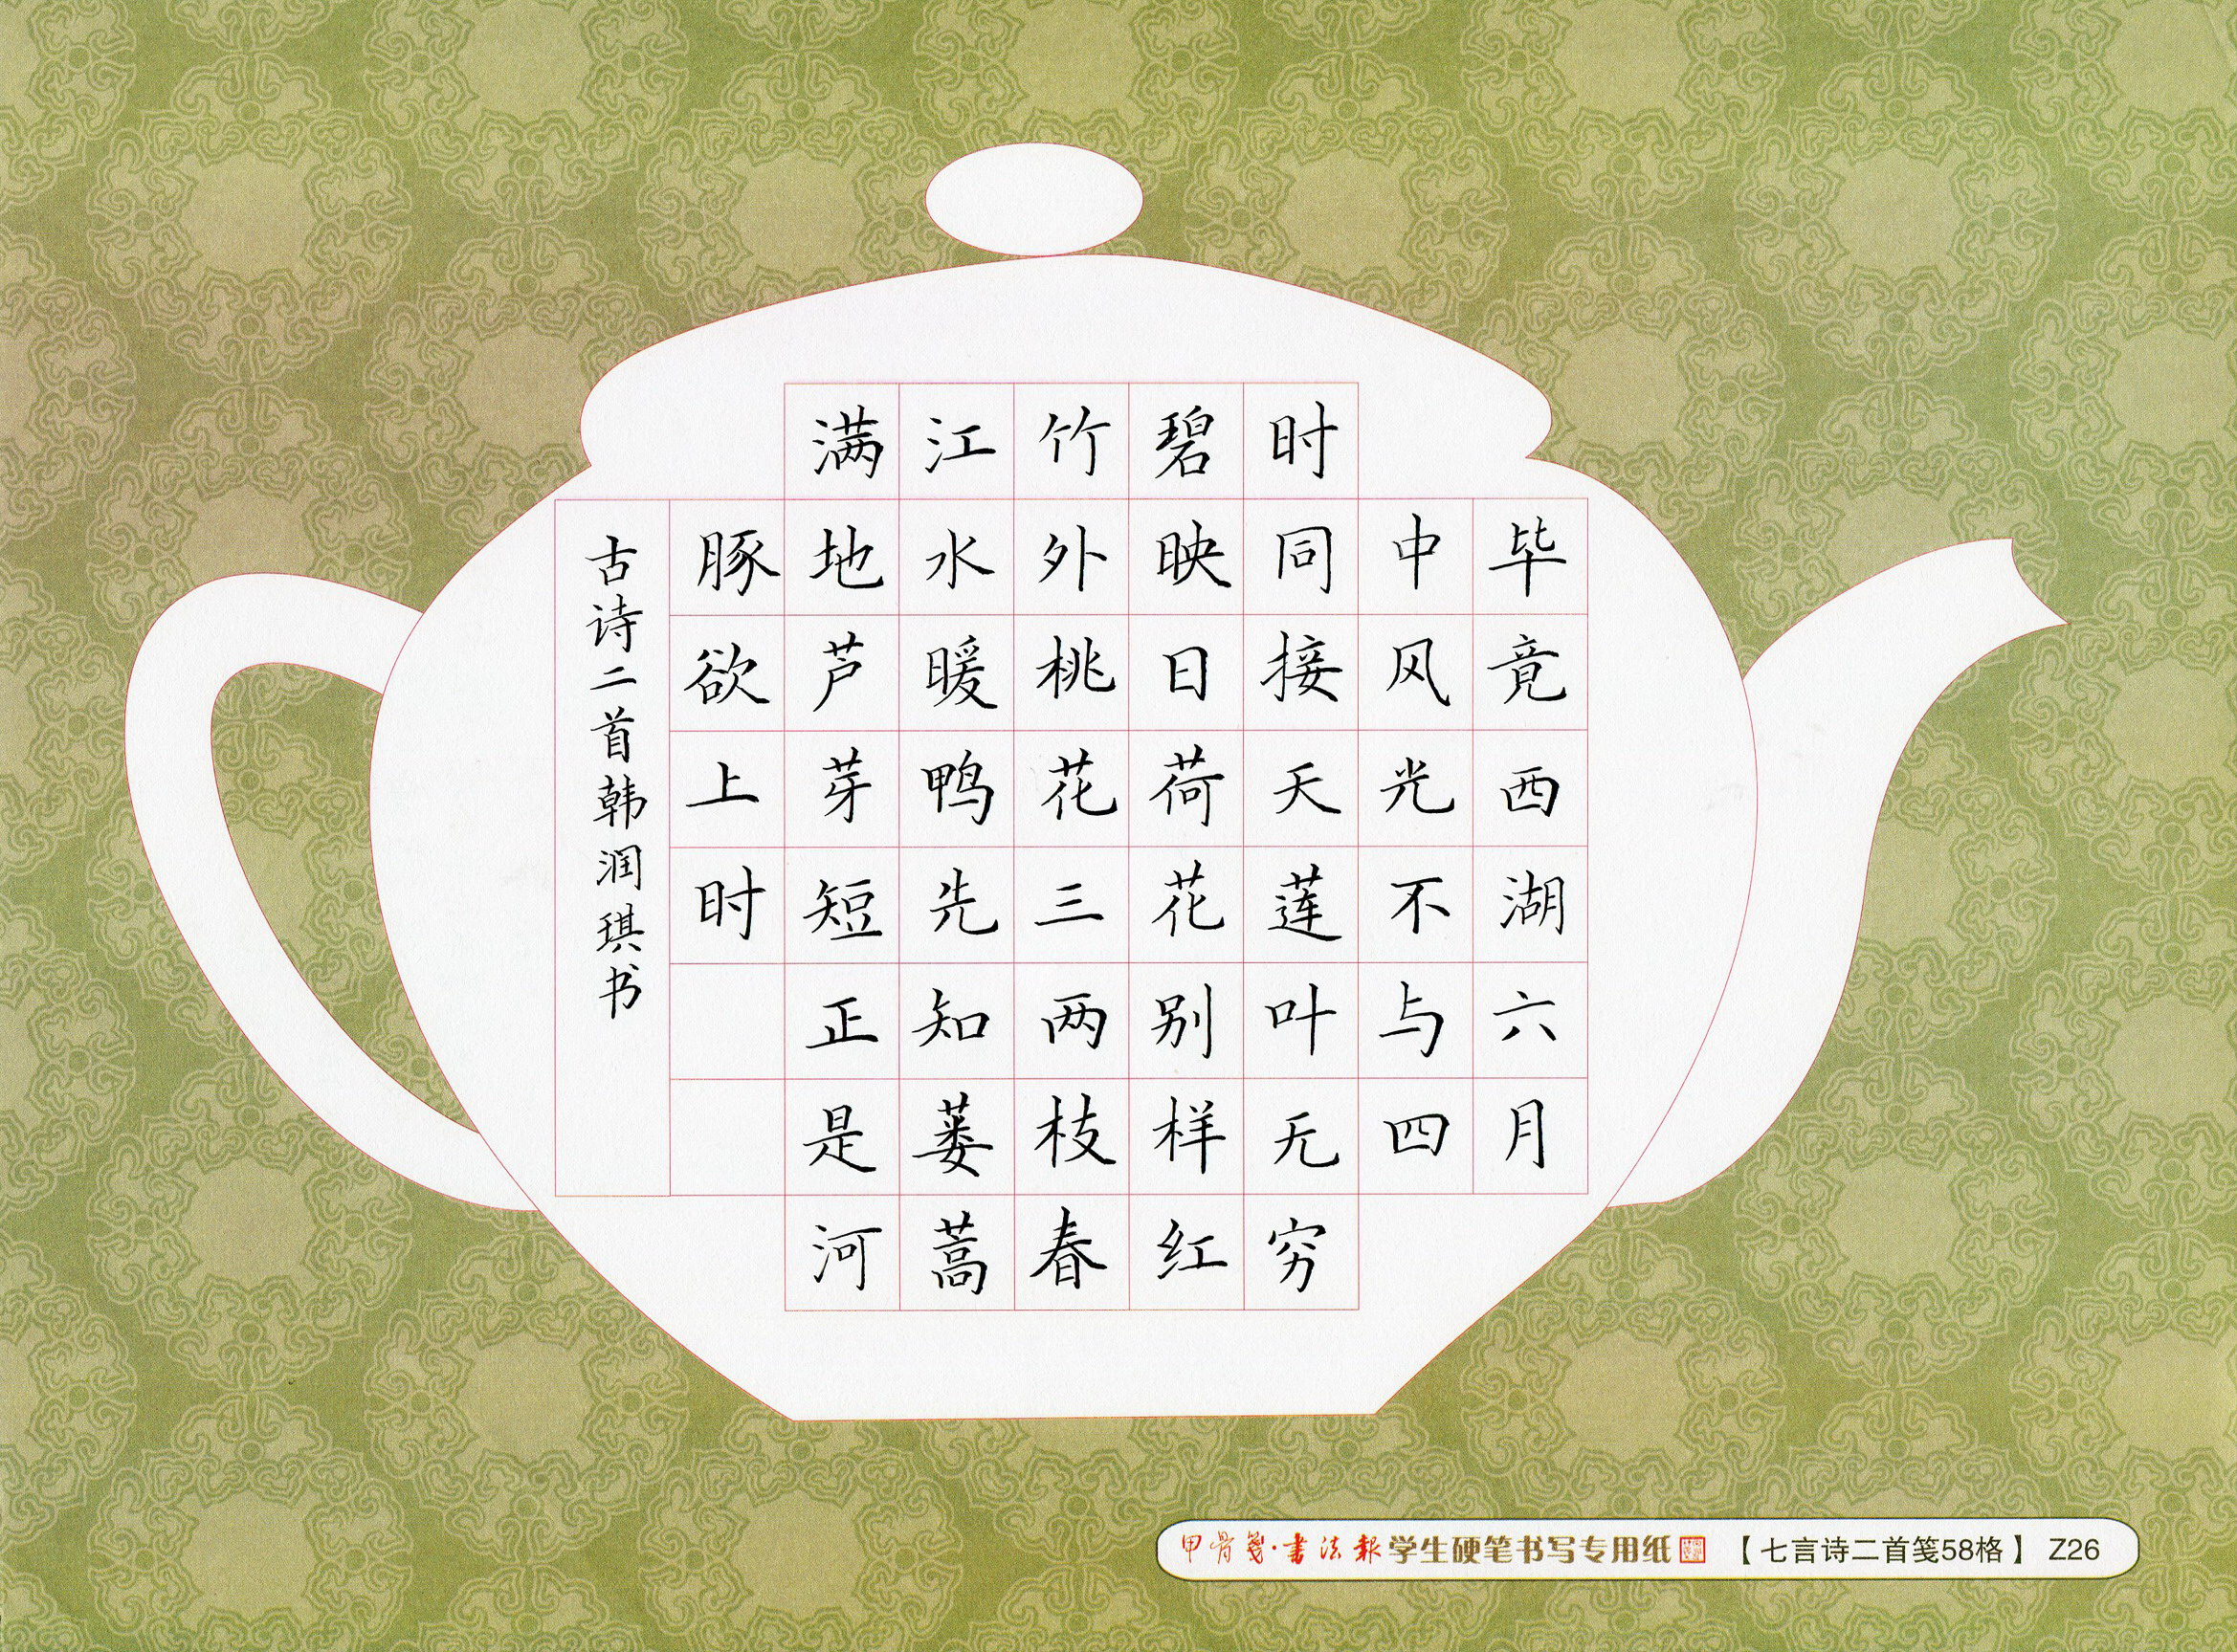 毕竟西湖六月
中风光不与四
时同接天莲叶无穷
碧映日荷花别样红
竹外桃花三两枝春
江水暖鸭先知蒌蒿
满地芦芽短正是河
豚欲上时
古诗二首韩润琪书
甲骨笺·书法报学生硬笔书写专用纸【七言诗二首笺58格】 Z26